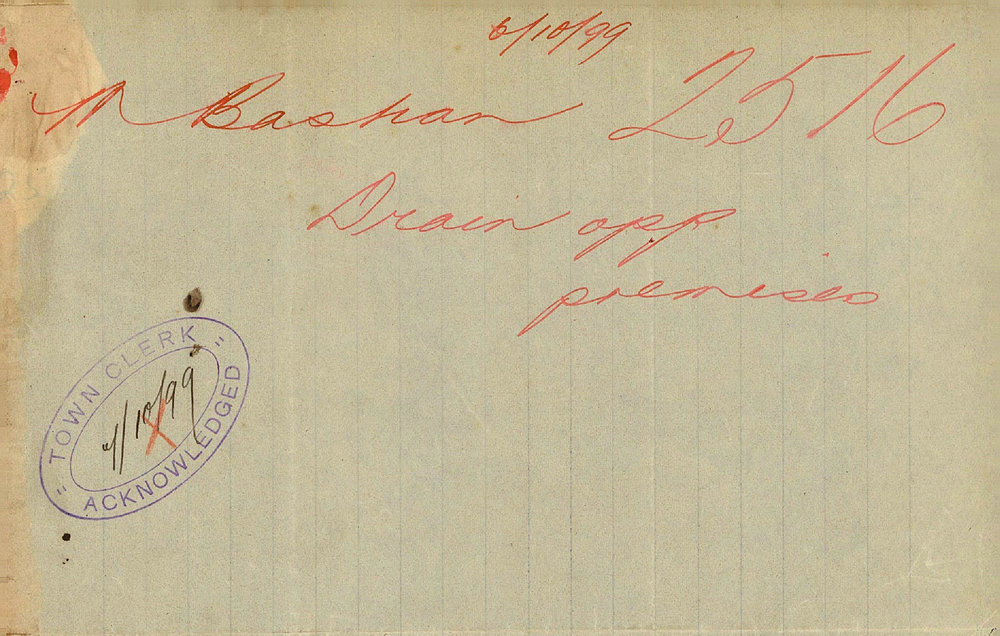 6/10/99
N Bashan 2516
Drain opp
premises
" TOWN CLERK "
7/10/99
ACKNOWLEDGED